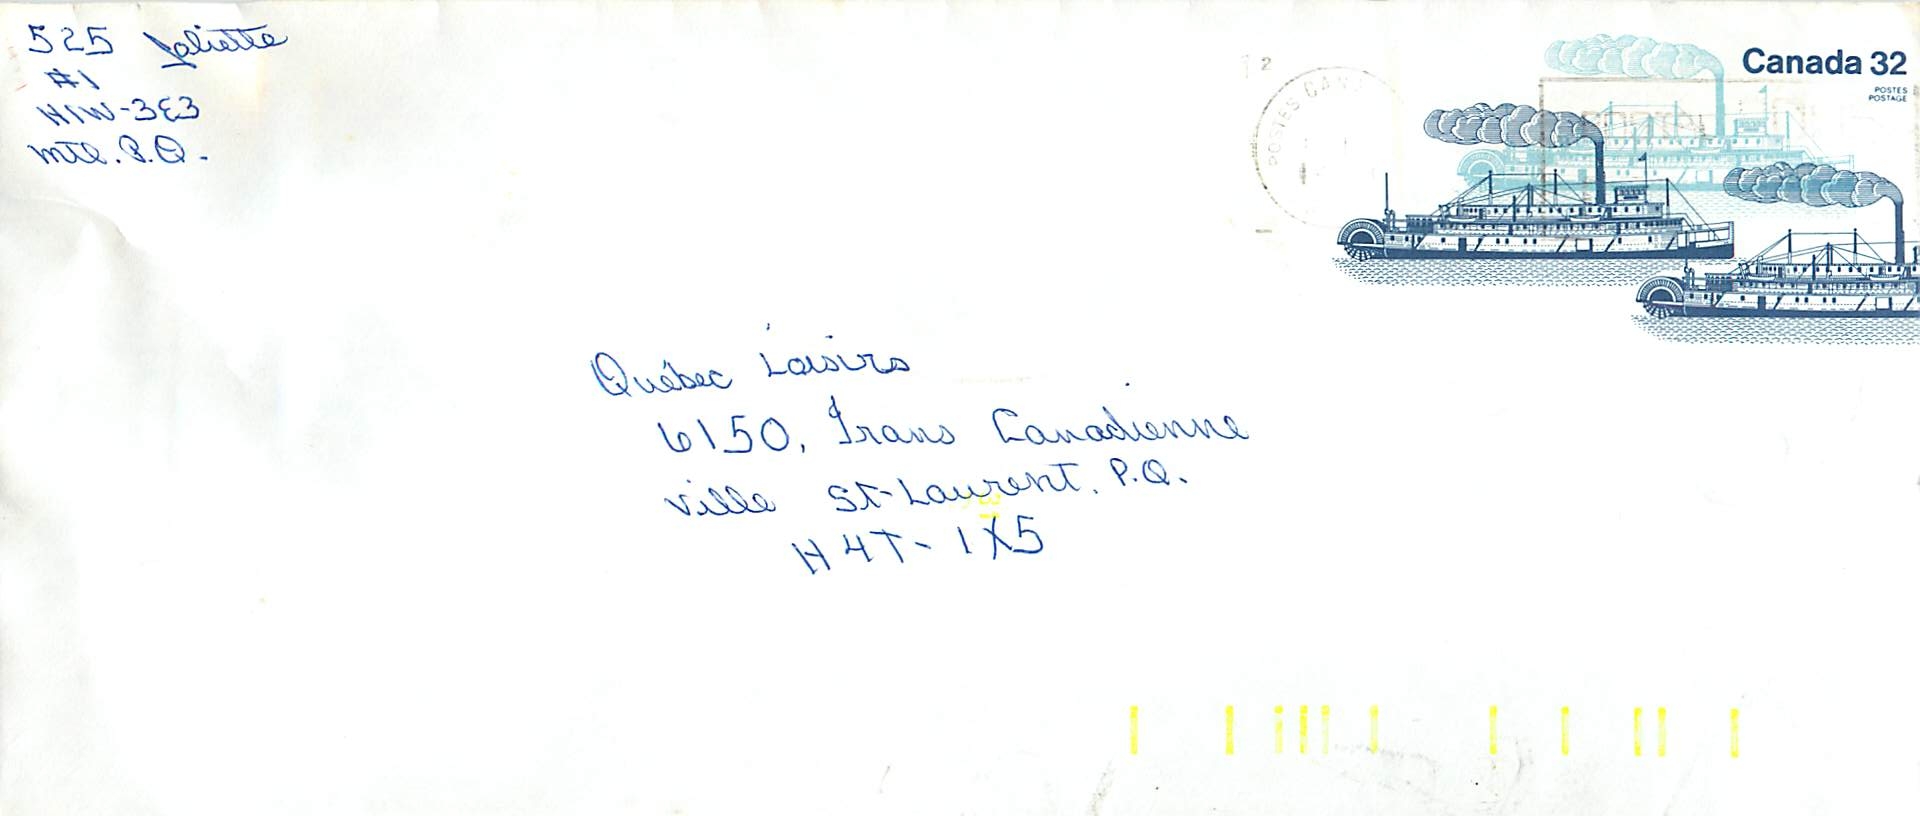 525 Joliette
#1
H1W-3E3
Mtl. P.Q.
Canada 32
POSTES
POSTAGE
POSTES CAN
Québec Loisirs
6150, Trans Canadienne
Ville St-Laurent, P.Q.
H4T-1X5